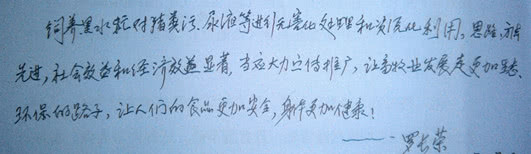 饲养黑水虻对猪粪污、尿液等进行无害化处理和资源化利用。思路、方法
先进,社会效益和经济效益显著,当应大力宣传推广,让畜牧业发展走更加生态
环保的路子,让人们的食品更加安全,身体更加健康!
——罗长荣